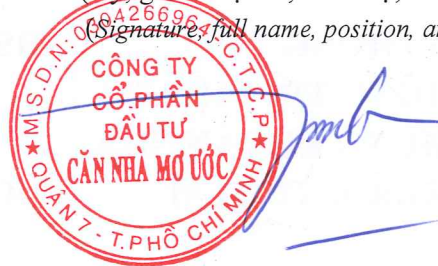 (Signature, full name, position, a
M.S.D.N: 0304266964-C.T.C.P
CÔNG TY
CỔ PHẦN
ĐẦU TƯ
CĂN NHÀ MƠ ƯỚC
QUẬN 7 - T.PHỐ CHÍ MINH